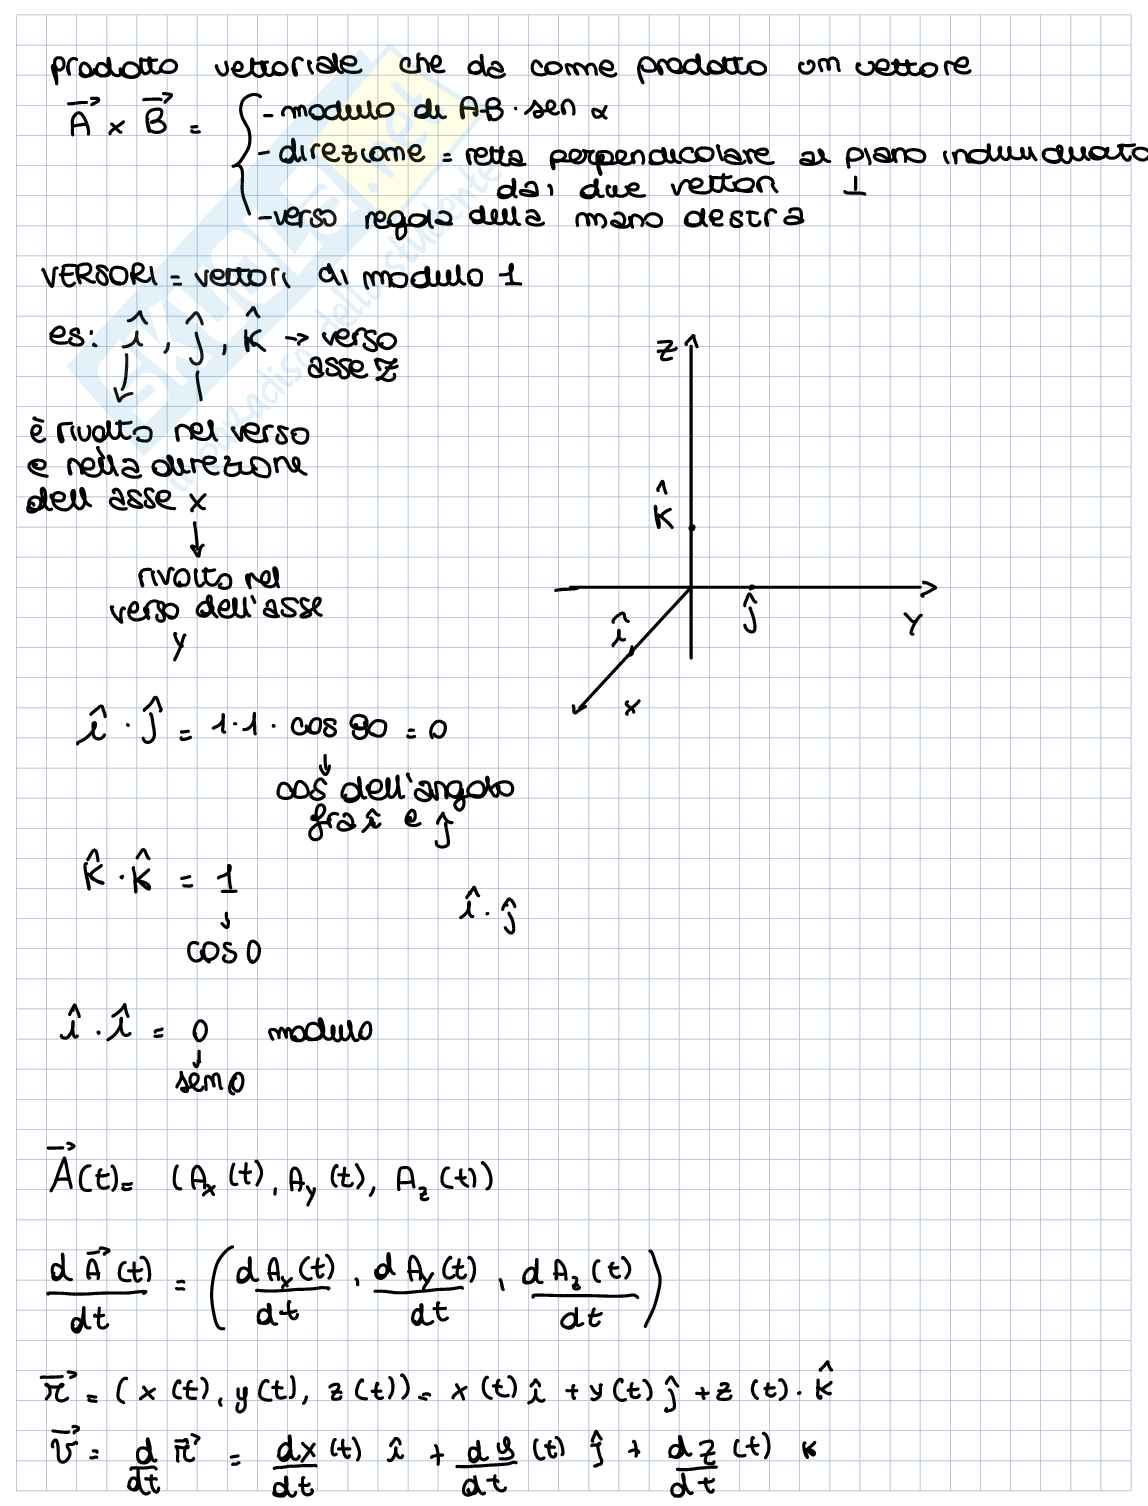 prodotto vettoriale che da come prodotto un vettore
A⃗ x B⃗ = { - modulo di AB · sen α
- direzione = retta perpendicolare al piano individuato
dai due vettori ⊥
- verso regola della mano destra
VERSORI = vettori di modulo 1
es: î, ĵ, k̂ → verso
asse z
è rivolto nel verso
e nella direzione
dell asse x
↓
rivolto nel
verso dell'asse
y
z
k̂
î
ĵ
y
x
î · ĵ = 1·1· cos 90 = 0
↓
cos dell'angolo
fra î e ĵ
k̂ · k̂ = 1
↓
cos 0
î · ĵ
î · î = 0 modulo
↓
sen 0
A⃗(t) = (Ax(t), Ay(t), Az(t))
dA⃗(t)/dt = (dAx(t)/dt, dAy(t)/dt, dAz(t)/dt)
r⃗ = (x(t), y(t), z(t)) = x(t) î + y(t) ĵ + z(t) · k̂
v⃗ = d/dt r⃗ = dx/dt (t) î + dy/dt (t) ĵ + dz/dt (t) k